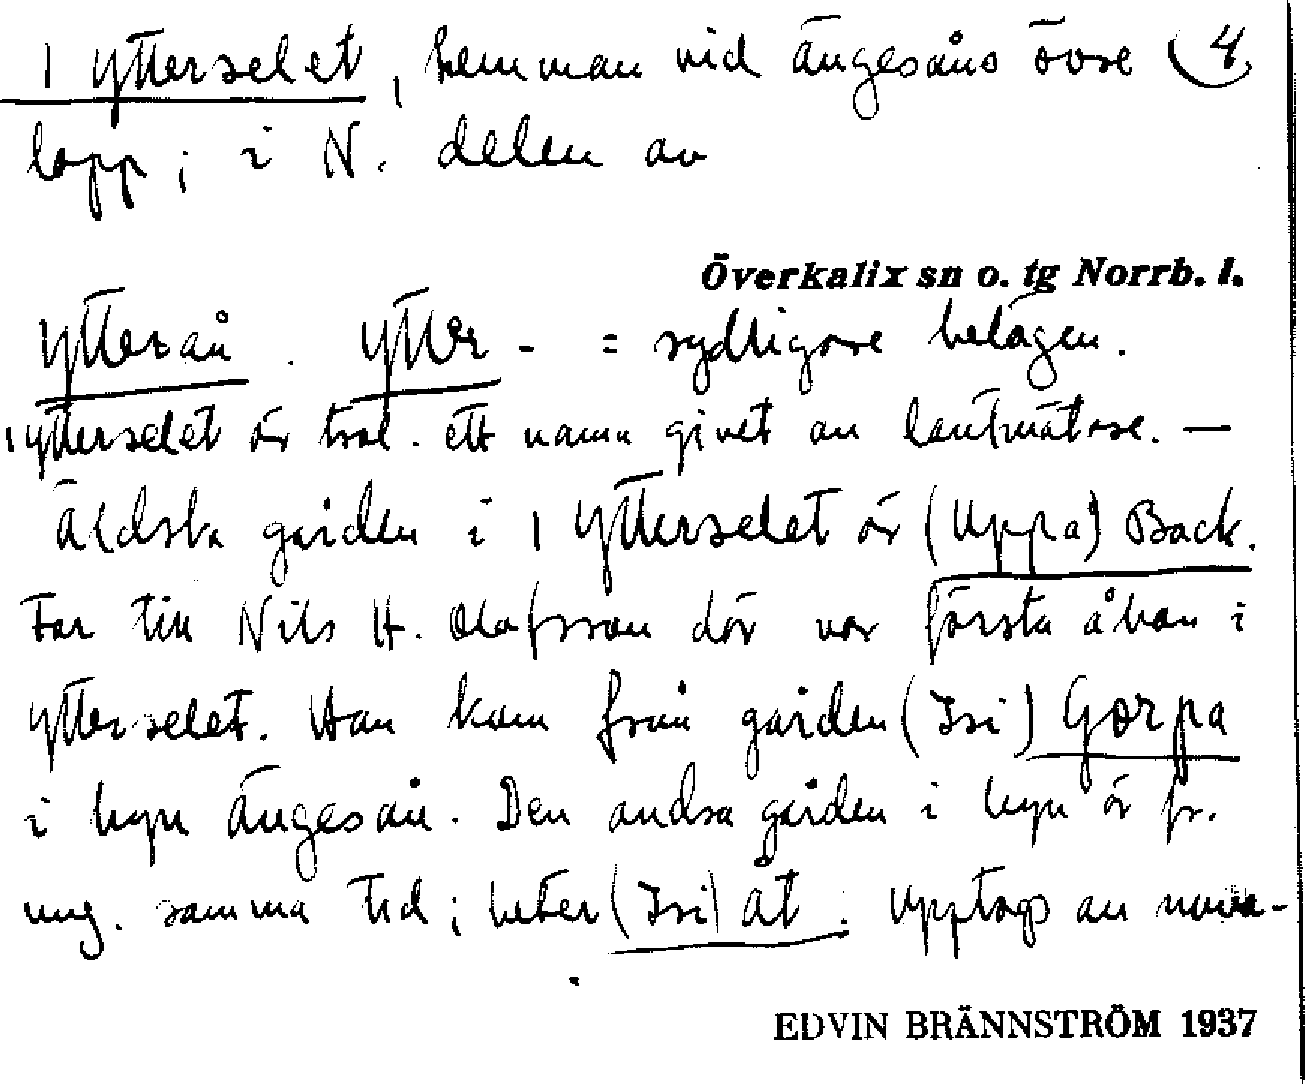 1 Ytterselet, hemman vid Ängesåns övre (4
lopp; i N. delen av
Överkalix sn o. tg Norrb. l.
Ytterån. Ytter- = sydligare belägen.
1 Ytterselet är trol. ett namn givet av lantmätare. —
Äldsta gården i 1 Ytterselet är (Uppa) Back.
Far till Nils H. Olofsson där var första åbon i
Ytterselet. Han kom från gården (Isi) Gorpa
i byn Ängesån. Den andra gården i byn är fr.
ung. samma tid; heter (Isi) åt. Upptogs av
EDVIN BRÄNNSTRÖM 1937